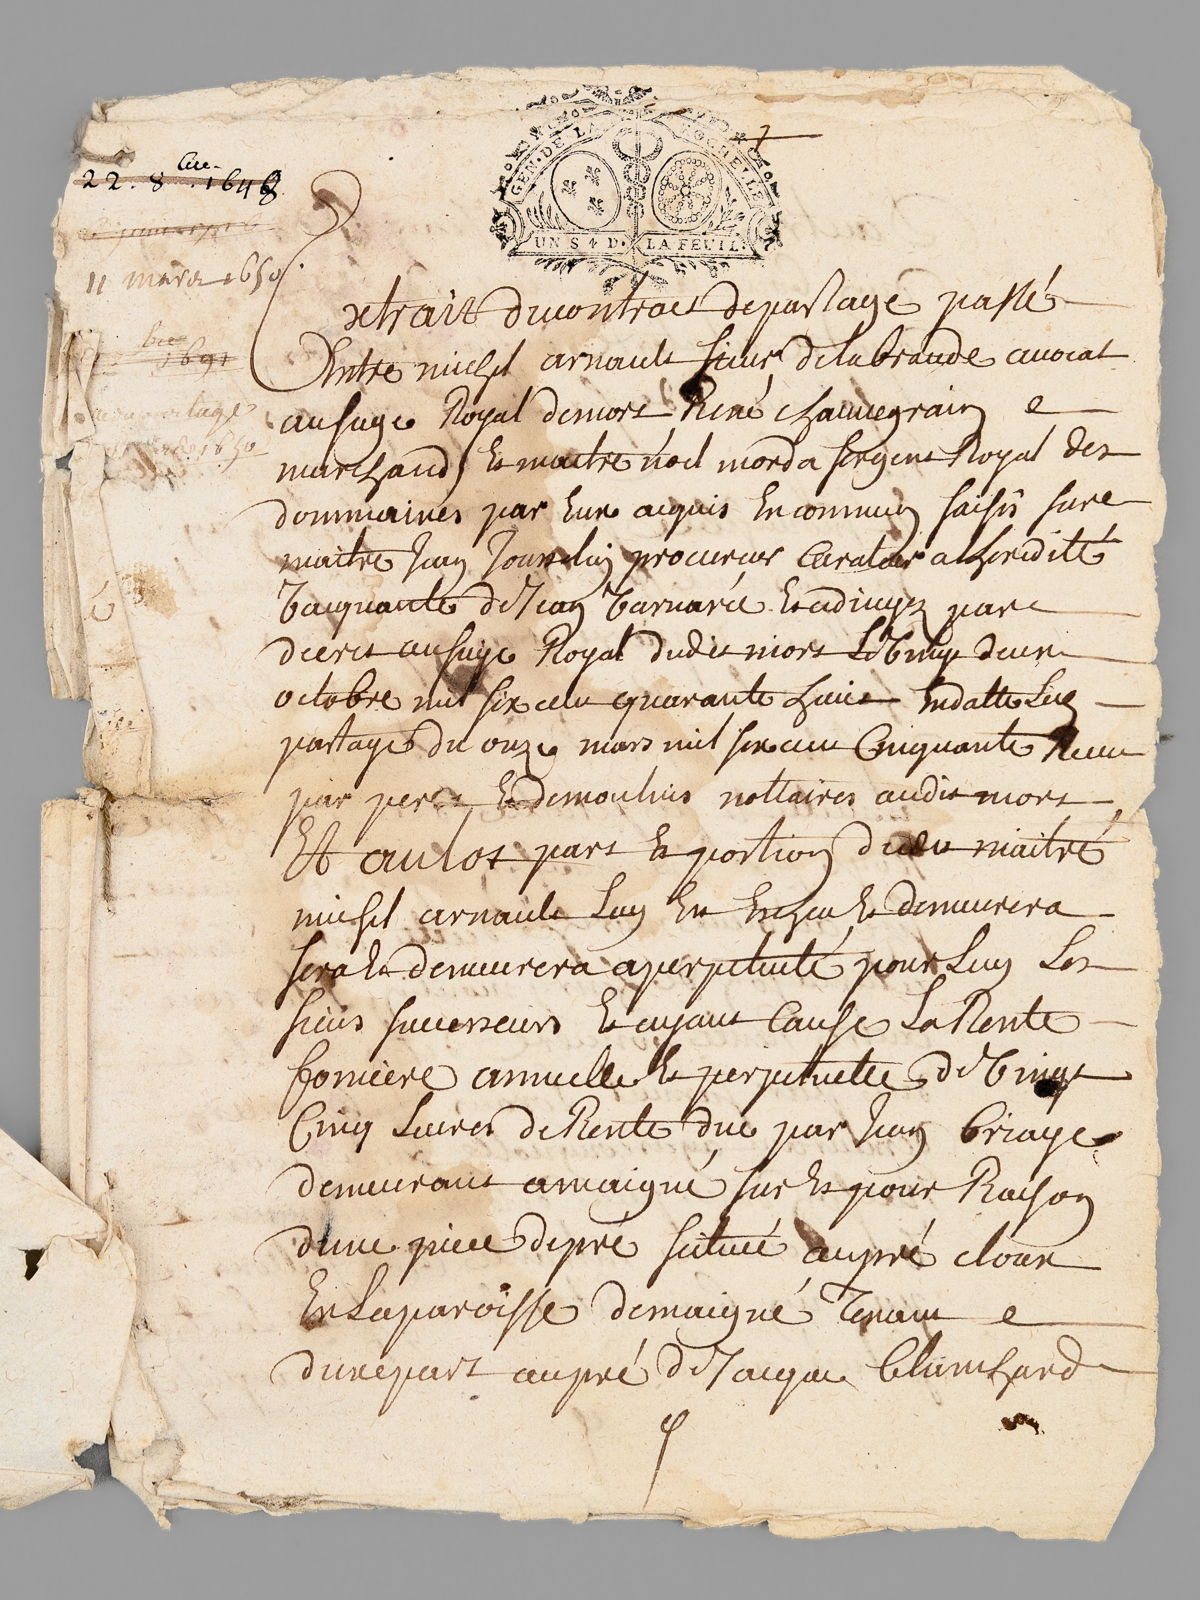 GEN. DE LA ROCHELLE
UN S 4 D. LA FEUIL.
22. 8 bre. 1648
11 mars 1650
bre
1691
partage
1650
Extrait du contract de partage passé
Entre michel arnault sieur de la brande avocat
au siege Royal de mors René chauvegrain e
marchand Et maitre noel morda sergent Royal des
dommaines par Eux acquis En commun saisis sur e
maitre Jean Jousselin procureur Curateur a lheredité
Vacquante de Jean Barnaré Et adiugez par
decret au siege Royal dudit mors Le Vingt deux
octobre mil six cent quarante huict En datte Led
partage du onze mars mil six cent Cinquante Receu
par Et demoulins nottaires audit mors
Et au lot part Et portion dudit maitre
michel arnault Luy Est Et demeurera
sera Et demeurera a perpetuité pour Luy Les
siens successeurs Et ayant Cause La Rente
fonciere annuelle Et perpetuelle de Vingt
Cinq Livres de Rente due par Jean briaye
demeurant a maigné sur Et pour Raison
dune piece de pré scitué au pré cloux
En La paroisse de maigné Tenant e
dune part au pré de Jacque blanchard